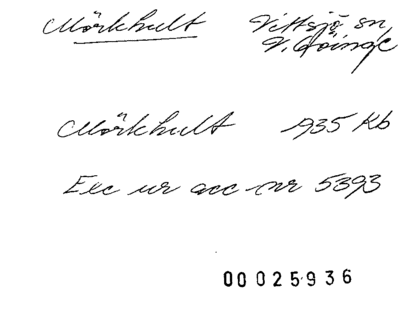 Mörkhult Vittsjö sn,
V. Göinge
Mörkhult 1935 Kb
Exc ur acc nr 5393
00025936